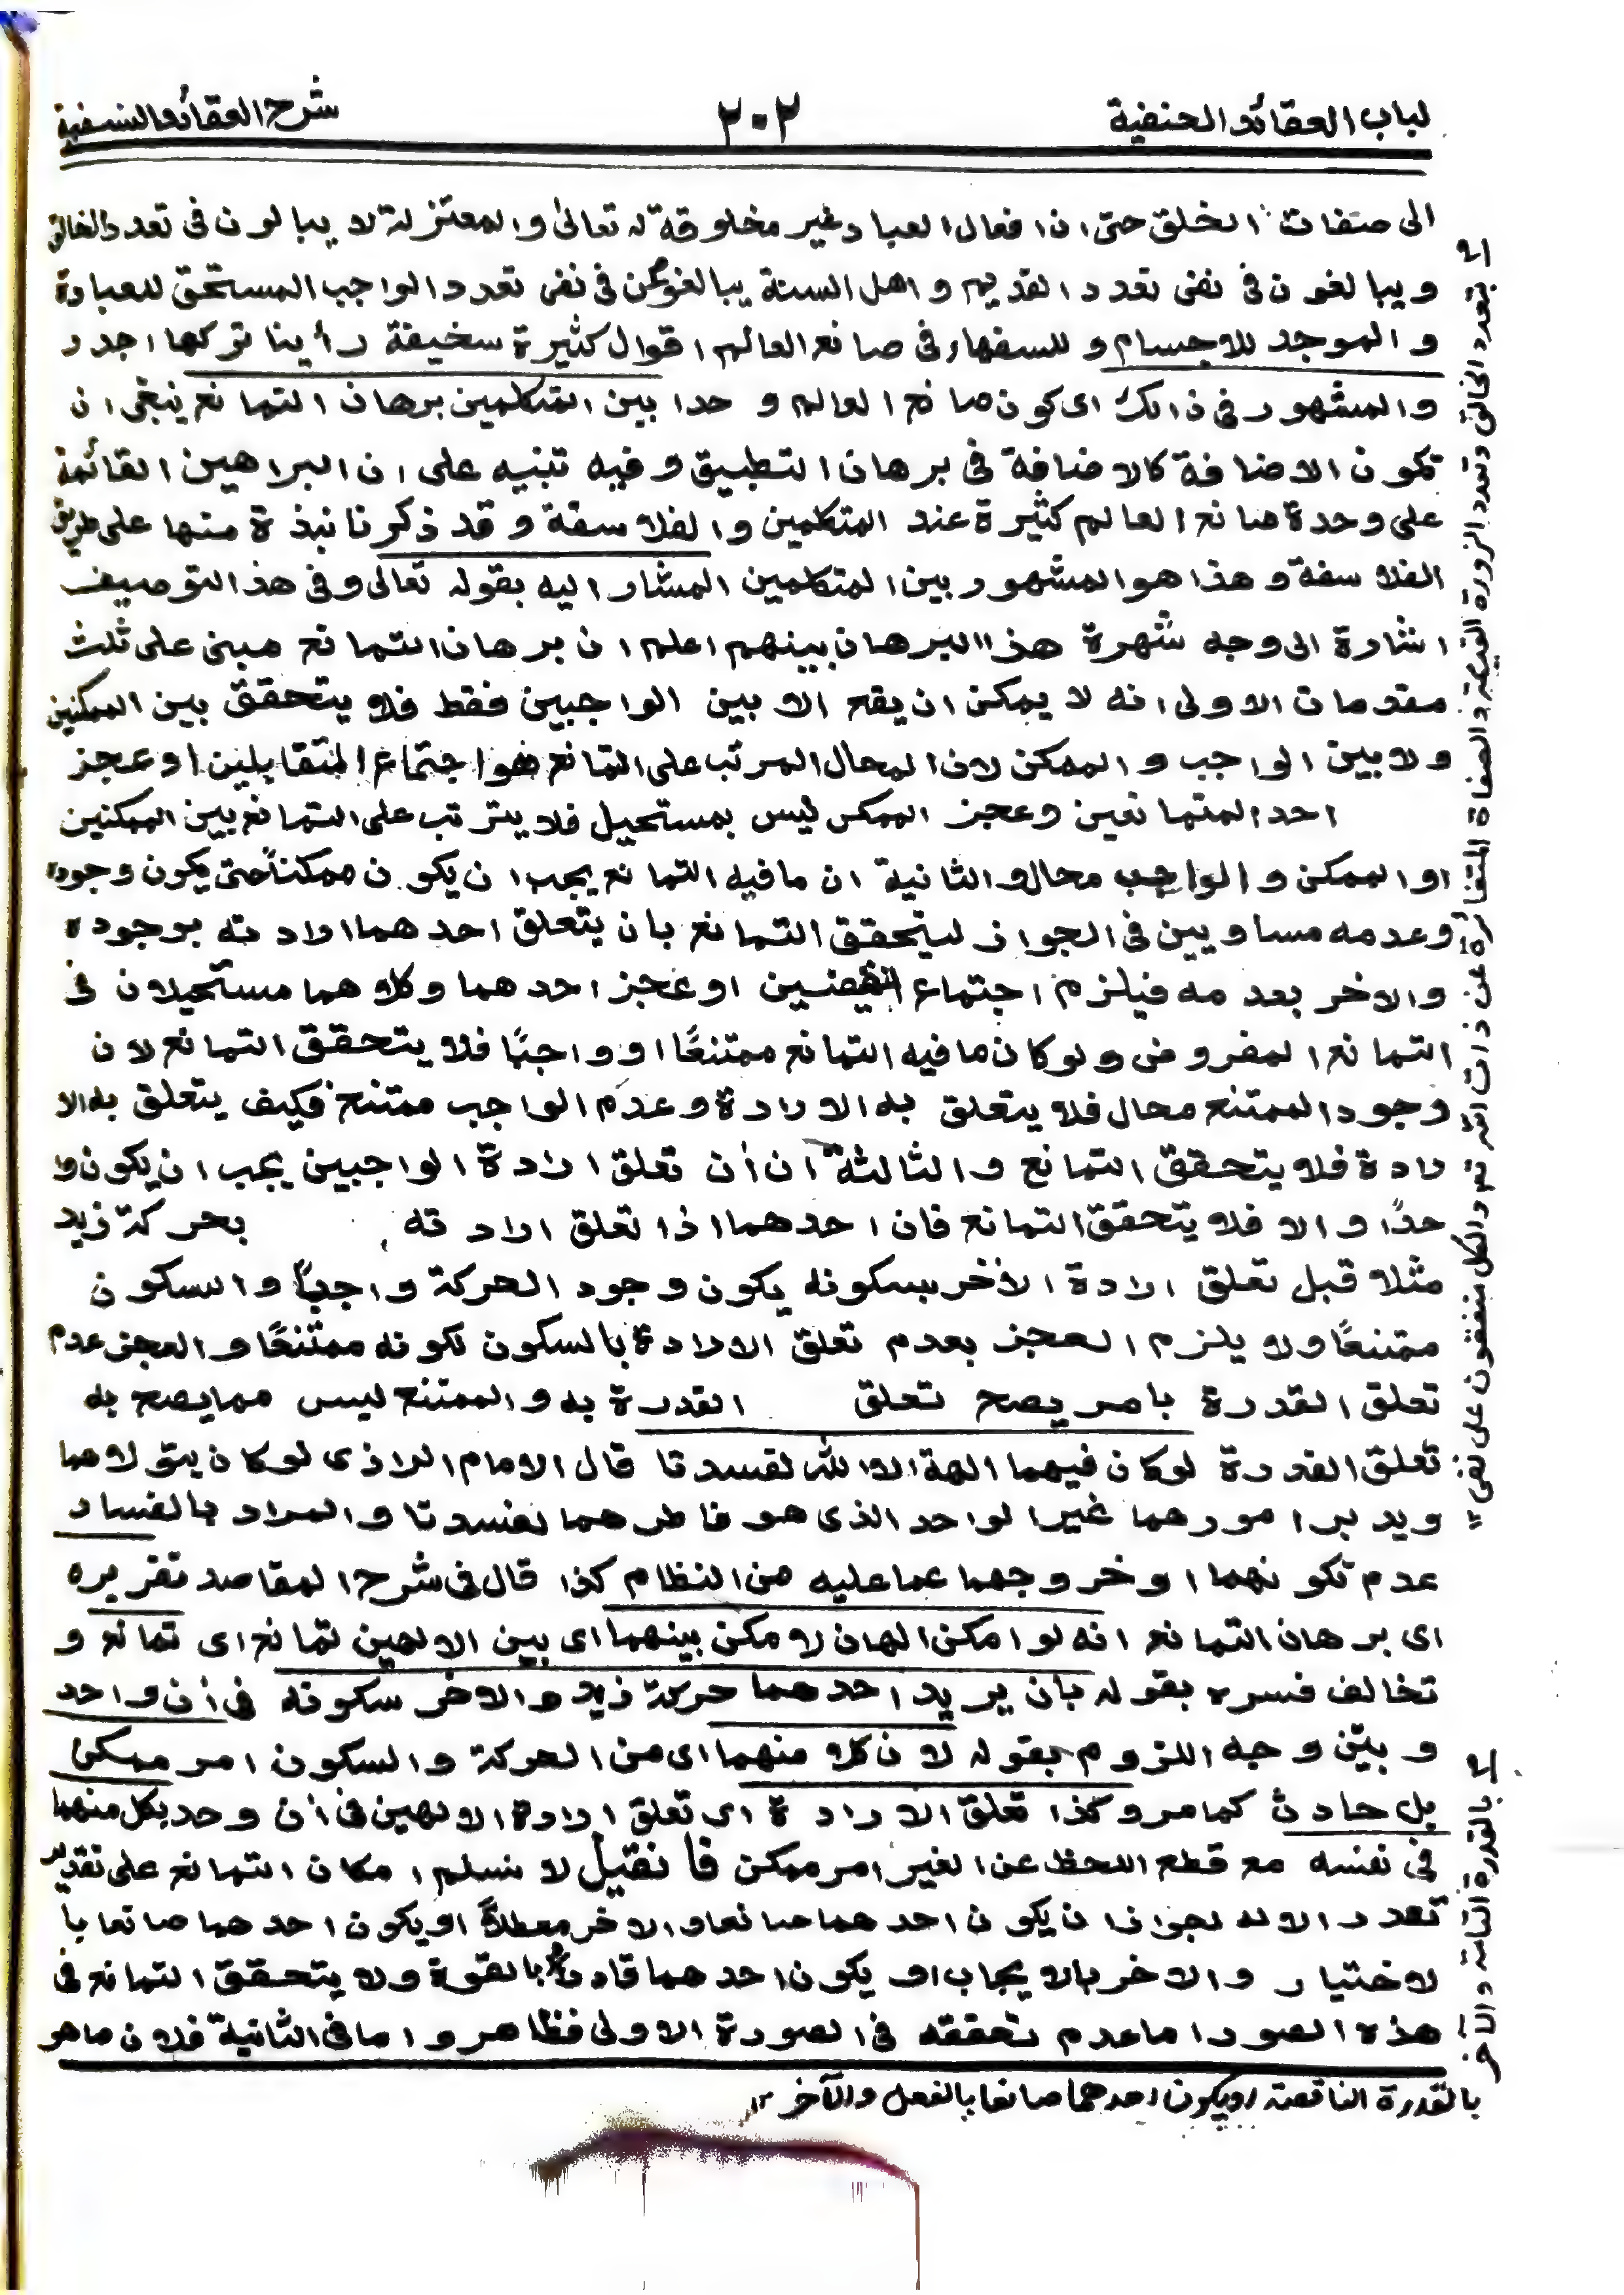 لباب العقائد الحنفية
٢٠٢
شرح العقائد النسفية
الى صنفات الخلق حتى ان افعال العباد غير مخلوقة له تعالىٰ والمعتزلة لا يبالون فى تعدد الخالق
ويبالغون فى نفى تعدد القديم واهل السنة يبالغون فى نفى تعدد الواجب المستحق للعبادة
والموجد للاجسام وللسفهاء فى صانع العالم اقوال كثيرة سخيفة رأينا تركها اجدر
والمشهور فى ذالك اى كون صانع العالم وحدا بين المتكلمين برهان التمانع ينبغى ان
تكون الاضافة كالاضافة فى برهان التطبيق وفيه تنبيه على ان البراهين القائمة
على وحدة صانع العالم كثيرة عند المتكلمين والفلاسفة وقد ذكرنا نبذة منها على طريق
الفلاسفة وهذا هو المشهور بين المتكلمين المشار اليه بقوله تعالى وفى هذ التوصيف
اشارة الى وجه شهرة هذا البرهان بينهم اعلم ان برهان التمانع مبنى على ثلث
مقدمات الاولى انه لا يمكن ان يقع الا بين الواجبين فقط فلا يتحقق بين الممكنين
ولا بين الواجب والممكن لان المحال المرتب على التمانع هو اجتماع المتقابلين او عجز
احد المتمانعين وعجز الممكن ليس بمستحيل فلا يترتب على التمانع بين الممكنين
او الممكن والواجب محال والثانية ان ما فيه التمانع يجب ان يكون ممكناً حتى يكون وجوده
وعدمه مساويين فى الجواز ليتحقق التمانع بان يتعلق احدهما ارادته بوجوده
والاخر بعدمه فيلزم اجتماع النقيضين او عجز احدهما وكلاهما مستحيلان فى
التمانع المفروض ولو كان ما فيه التمانع ممتنعًا او واجبًا فلا يتحقق التمانع لان
وجود الممتنع محال فلا يتعلق به الارادة وعدم الواجب ممتنع فكيف يتعلق به الا
رادة فلا يتحقق التمانع والثالثة ان أن تعلق ارادة الواجبين يجب ان يكون وا
حدًا والا فلا يتحقق التمانع فان احدهما اذا تعلق ارادته بحركة زيد
مثلا قبل تعلق ارادة الأخر بسكونه يكون وجود الحركة واجباً والسكون
ممتنعًا ولا يلزم العجز بعدم تعلق الارادة بالسكون لكونه ممتنعًا والعجز عدم
تعلق القدرة بامر يصح تعلق القدرة به والممتنع ليس مما يصح به
تعلق القدرة لوكان فيهما الهة الا الله لفسدتا قال الامام الرازى لوكان يتولاهما
ويدبر امورهما غير الواحد الذى هو فاطرهما لفسدتا والمراد بالفساد
عدم تكونهما او خروجهما عما عليه من النظام كذا قال فى شرح المقاصد تقريره
اى برهان التمانع انه لو امكن الهان لامكن بينهما اى بين الالهين تمانع اى تمانع و
تخالف فسره بقوله بان يريد احدهما حركة زيد والاخر سكونه فى أن واحد
وبيّن وجه اللزوم بقوله لان كلا منهما اى من الحركة والسكون امر ممكن
بل حادث كما مر وكذا تعلق الارادة اى تعلق ارادة الالهين فى أن وحد بكل منهما
فى نفسه مع قطع اللحظ عن الغير امر ممكن فأنقيل لا نسلم امكان التمانع على تقدير
تعدد الاله لجواز ان يكون احدهما صانعا والاخر معطلاً او يكون احدهما صانعا با
لاختيار والاخر بالايجاب او يكون احدهما قادرًا بالقوة ولا يتحقق التمانع فى
هذه الصور اما عدم تحققه فى الصورة الاولى فظاهر واما فى الثانية فلان ماهو
بتعدد الخالق وتعدد الزورة القديمة والصفاة المتغائرة عن ذات الله تع والكل متفقون على نفى
بالقدرة التامة والآخر
بالقدرة الناقصة او يكون احدهما صانعا بالفعل والآخر ١٢